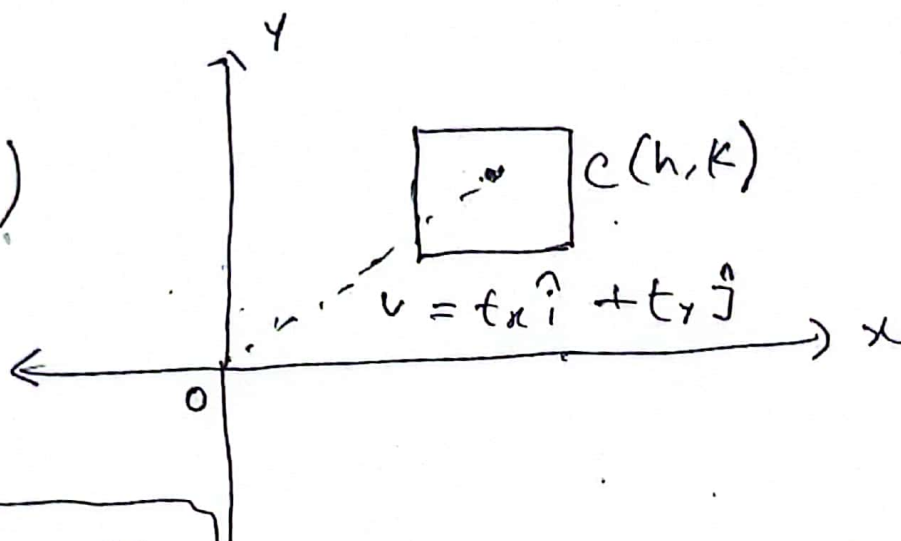 Y
)
C (h, K)
v = tx î + ty ĵ
x
O